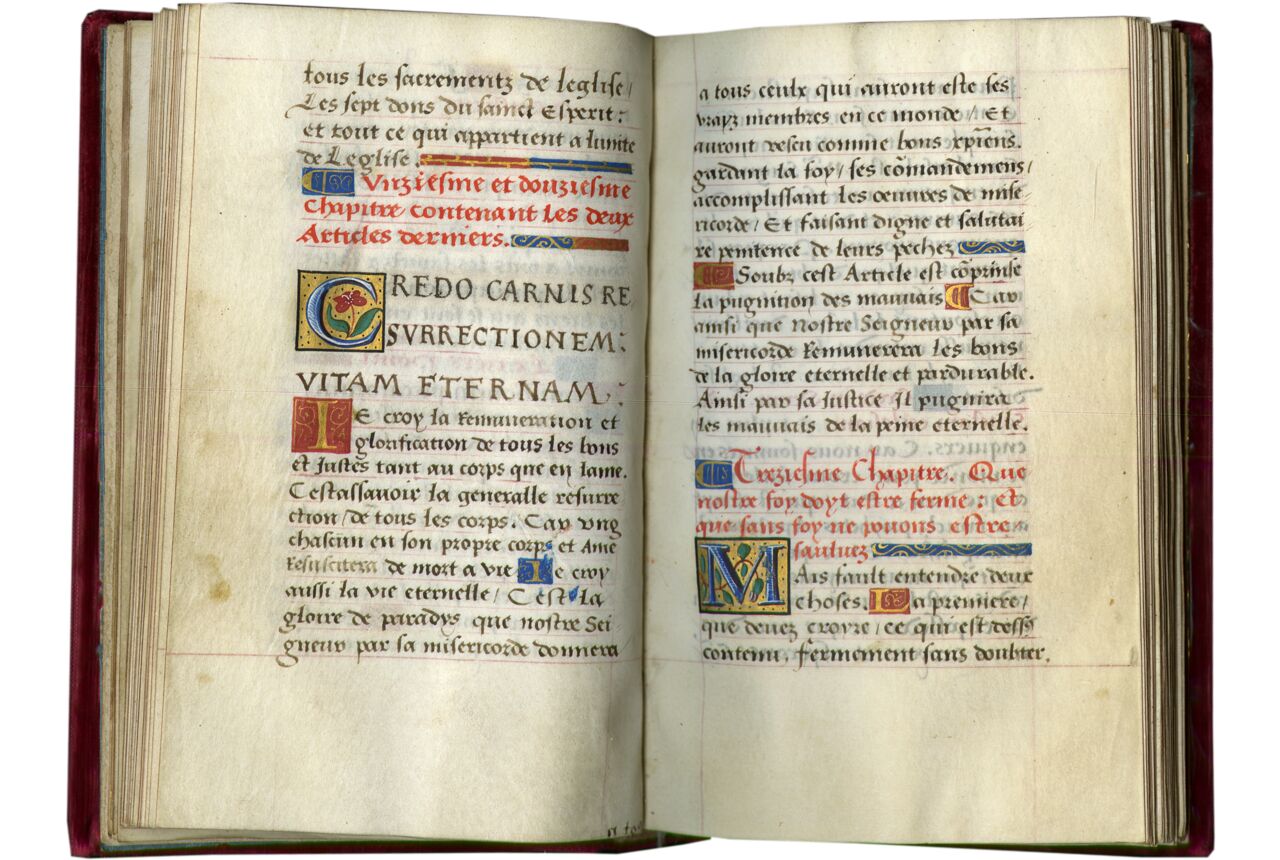 tous les sacrementz de leglise /
Les sept dons du sainct Esperit :
et tout ce qui appartient a lunite
de Leglise .
Vnziesme et douziesme
Chapitre contenant les deux
Articles derniers .
CREDO CARNIS RE
SVRRECTIONEM :
VITAM ETERNAM :
IE croy la Remuneration et
glorification de tous les bons
et Justes tant au corps que en lame .
Cestassavoir la generalle resurre
ction / de tous les corps . Car vng
chascun en son propre corps et Ame
Resuscitera de mort a vie Ie croy
aussi la vie eternelle / Cest La
gloire de paradys que nostre Sei
gneur par sa misericorde donnera
a tous ceulx qui auront este ses
vrayz membres en ce monde / Et
auront vescu comme bons xpīens .
gardant la foy / ses cōmandemens /
accomplissant les oeuures de mise
ricorde / Et faisant digne et salutai
re penitence de leurs pechez
Soubz cest Article est cōprinse
La pugnition des mauuais Car
ainsi que Nostre Seigneur par sa
misericorde Remunerera les bons
de la gloire eternelle et pardurable .
Ainsi par sa Justice Il pugnira
les mauuais de la peine eternelle .
Treziesme Chapitre . Que
nostre foy doyt estre ferme : Et
que sans foy ne pouons estre
sauluez
MAis fault entendre deux
choses . La premiere /
que deuez croyre / ce qui est dess9
contenu , fermement sans doubter .